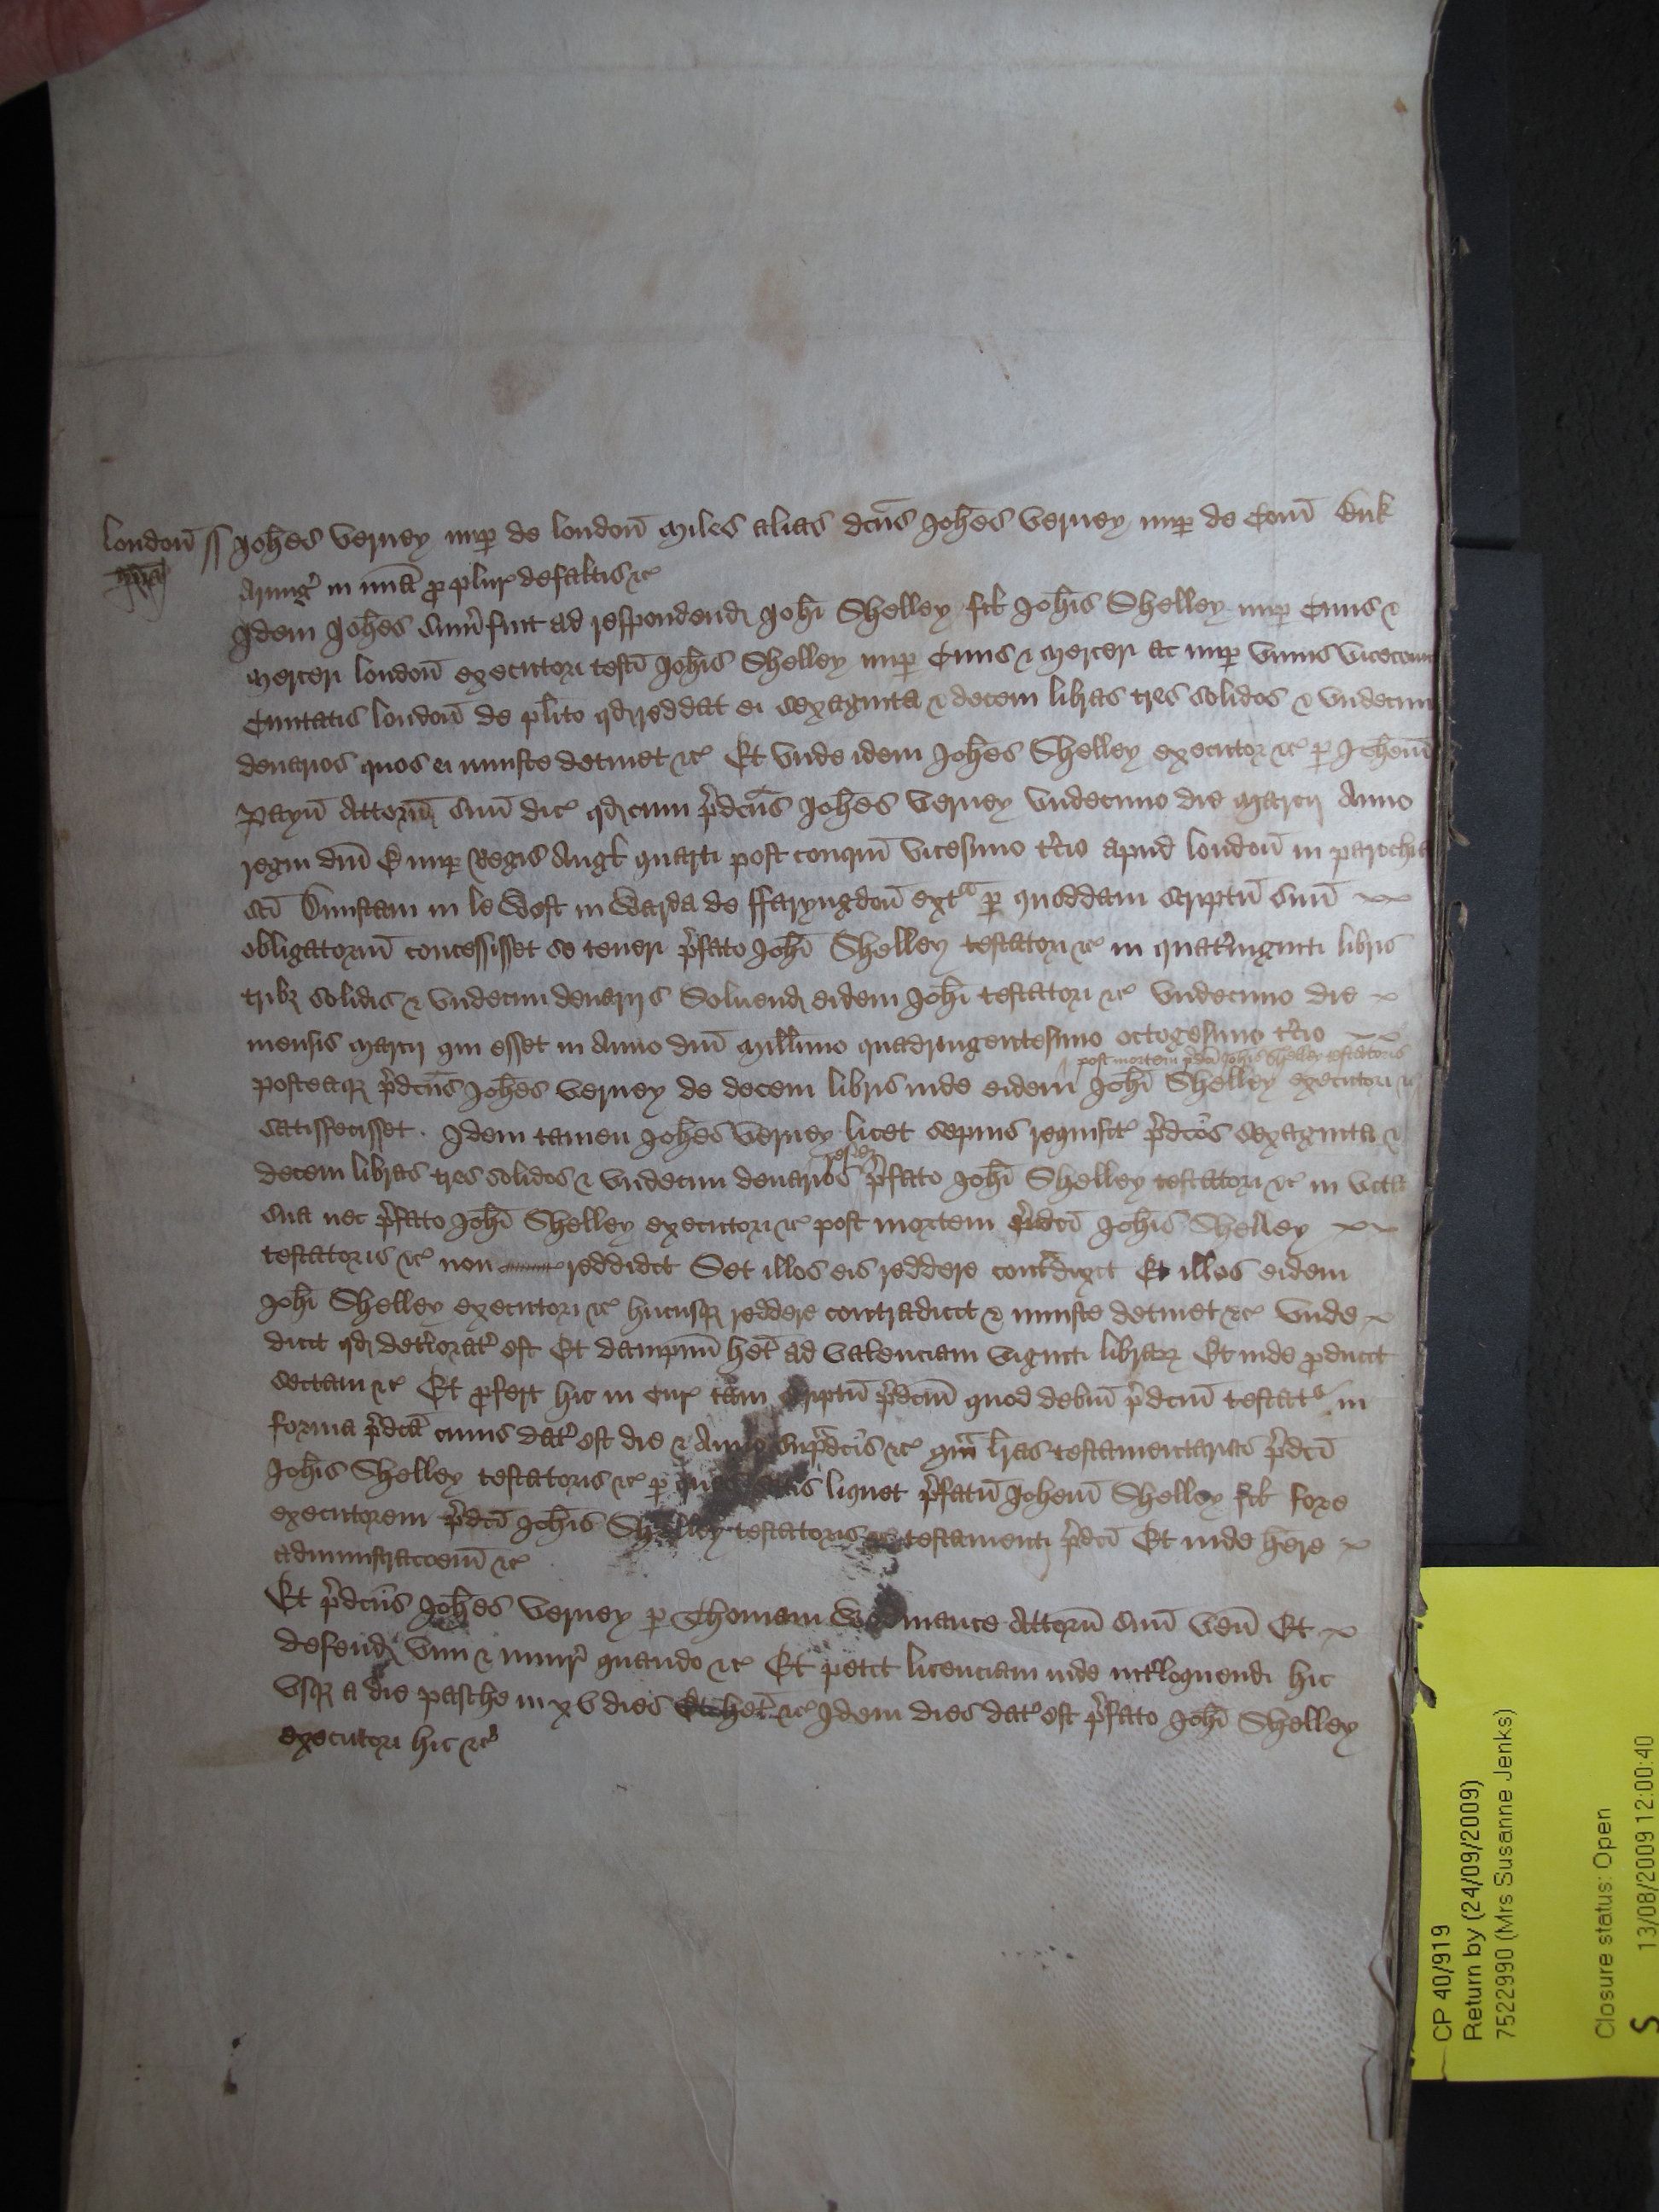 londoń ss Joh̄es Verney nup̱ de londoń Miles alias dc̄us Joh̄es Verney nup̱ de Com̄ Buk
Armig̓ in m̄ia p̱ plur̛ defaltis ꝛc̛
Idem Joh̄es sum̄ fuit ad respondend̛ Joh̄i Shelley fił Joh̄is Shelley nup̱ Ciuis ⁊
Merceri londoń executori testī Joh̄is Shelley nup̱ Ciuis ⁊ Merceri ac nup̱ vnius vicecom
Ciuitatis londoń de pl̄ito qd̛ reddat ei sexaginta ⁊ decem libras tres solidos ⁊ vndecim
denarios quos ei iniuste detinet ꝛc̛ Et vnde idem Joh̄es Shelley executor ꝛc̛ p̱ Joh̄em
Payn̄ Attorn̄ suū dic̛ qd̛ cum p̓dc̄us Joh̄es Verney vndecimo die Marcij Anno
regni dn̄i E nup̱ Regis Angł quarti post conqm̄ vicesimo t̓cio apud londoń in parochia
sc̄i Dunstani in le West in Warda de ffaryngdoń ext̛ᵃ p̱ quoddam scriptū suū
obligatoriū concessisset se teneri p̓fato Joh̄i Shelley testatori ꝛc̛ in quat̓viginti libris
tribꝫ solidis ⁊ vndecim denarijs Soluend̛ eidem Joh̄i testatori ꝛc̛ vndecimo die
mensis Marcij qui esset in Anno dn̄i Mill̄imo quadringentesimo octogesimo t̓cio
post mortem p̓dc̄i Joh̄is Shelley testatoris
posteaqꝫ p̓dc̄us Joh̄es Verney de decem libris inde eidem Joh̄i Shelley executori ꝛc̛
satisfecisset. Idem tamen Joh̄es Verney licet sepius requisit̛ p̓dc̄os sexaginta ⁊
resid̛
decem libras tres solidos ⁊ vndecim denarios p̓fato Joh̄i Shelley testatori ꝛc̛ in vita
sua nec p̓fato Joh̄i Shelley executori ꝛc̛ post mortem p̓dc̄i Joh̄is Shelley
testatoris ꝛc̛ non reddidit Set illos eis reddere cont̛ᵃdixit Et illos eidem
Joh̄i Shelley executori ꝛc̛ hucusqꝫ reddere contradicit ⁊ iniuste detinet ꝛc̛ vnde
dicit qd̛ det̓iorat̛ est Et dampnū het̄ ad valenciam viginti librarꝫ Et inde p̱ducit
sectam ꝛc̛ Et p̱fert hic in Cur̛ tam scriptū p̓dc̄m quod debitū p̓dc̄m testat̛ʳ in
forma p̓dc̄a cuius dat̛ est die ⁊ Anno sup̓dc̄is ꝛc̛ qᵃm l̄ras testamentarias p̓dc̄i
Joh̄is Shelley testatoris ꝛc̛ p̱ liquet p̓fatū Joh̄em Shelley fił fore
executorem p̓dc̄i Joh̄is Shelley testatoris ꝛc̛ testamenti p̓dc̄i Et inde h̄ere
administracōem ꝛc̛
Et p̓dc̄us Joh̄es Verney p̱ Thomam Attorn̄ suū ven̄ Et
defend̛ vim ⁊ iniur̛ quando ꝛc̛ Et petit licenciam inde int̓loquendi hic
vsqꝫ a die pasche in xv dies Et het̄ ꝛc̛ Idem dies dat̛ est p̓fato Joh̄i Shelley
executori hic ꝛc̛
CP 40/919
Return by (24/09/2009)
7522990 (Mrs Susanne Jenks)
Closure status: Open
13/08/2009 12:00:40
S